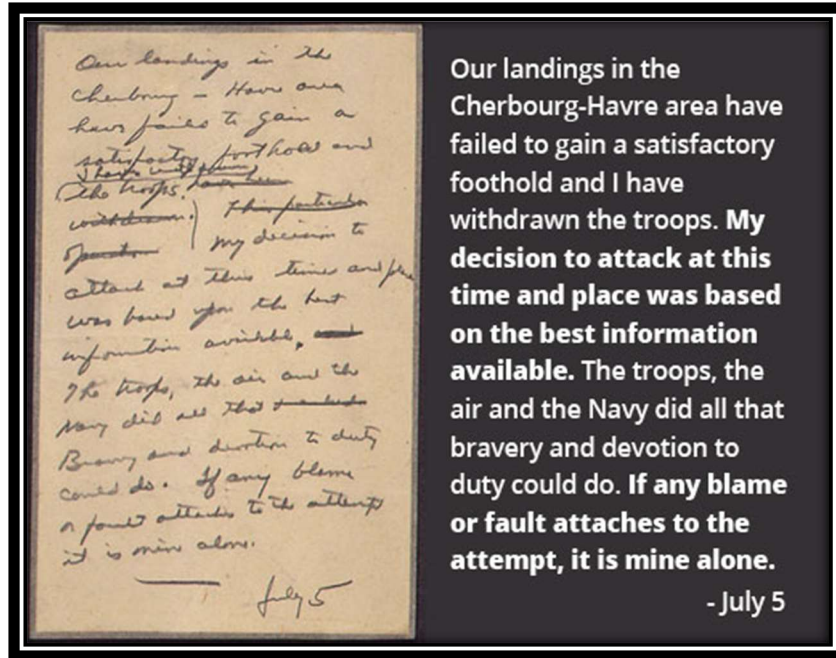 Our landings in the
Cherbourg - Havre area
have failed to gain a
satisfactory foothold and
I have withdrawn
the troops. have been
withdrawn. This particular
operation My decision to
attack at this time and place
was based upon the best
information available, and
The troops, the air and the
Navy did all that
Bravery and devotion to duty
could do. If any blame
or fault attaches to the attempt
it is mine alone.
July 5
Our landings in the
Cherbourg-Havre area have
failed to gain a satisfactory
foothold and I have
withdrawn the troops. My
decision to attack at this
time and place was based
on the best information
available. The troops, the
air and the Navy did all that
bravery and devotion to
duty could do. If any blame
or fault attaches to the
attempt, it is mine alone.
- July 5